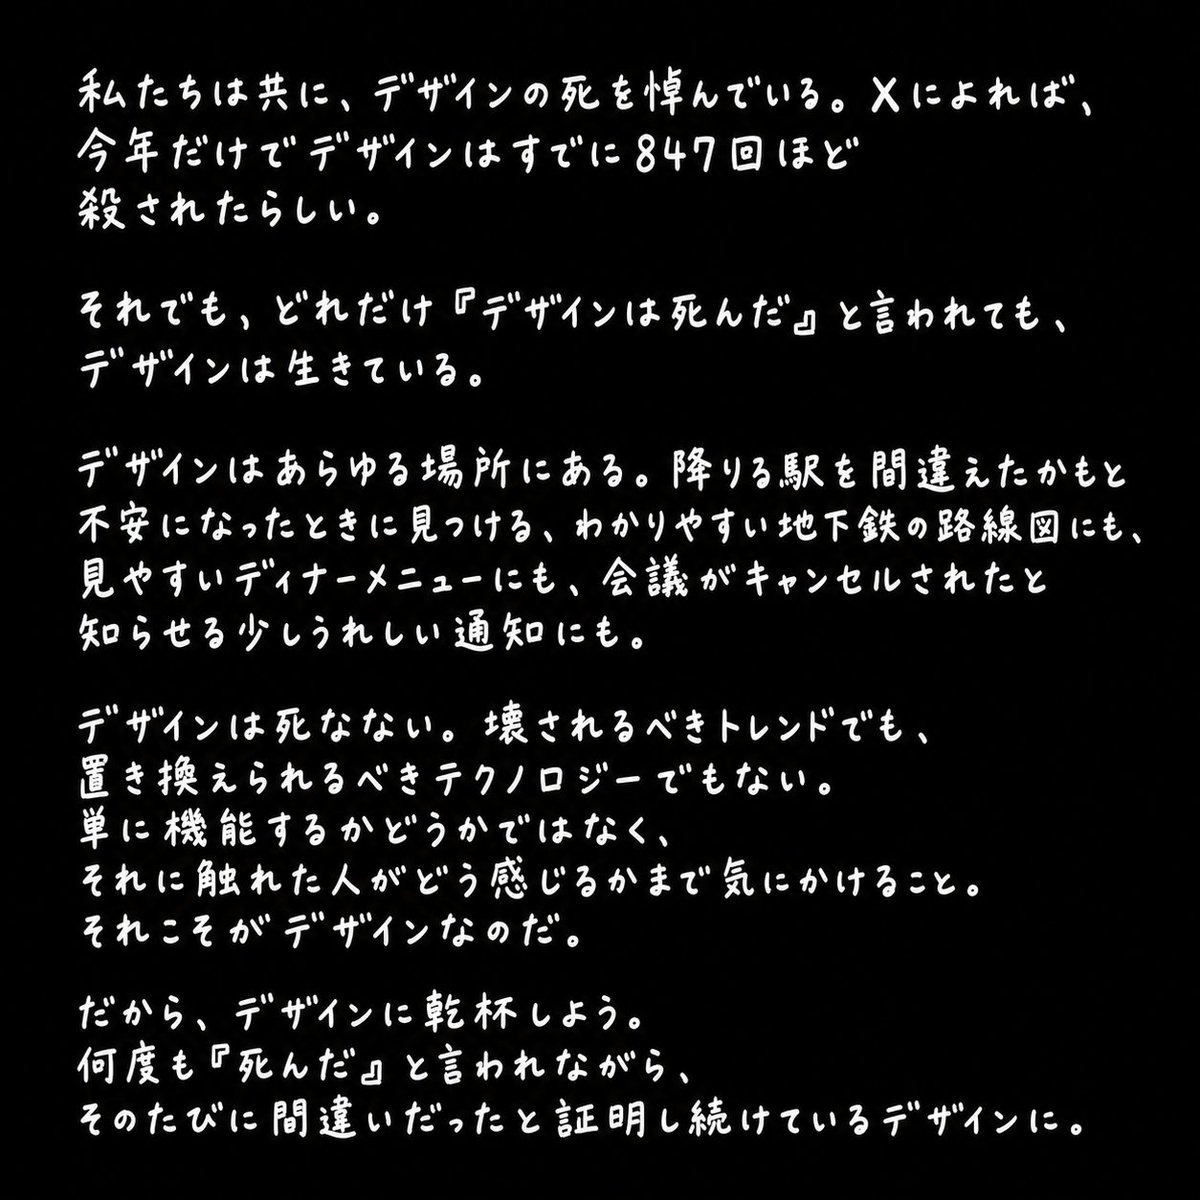 私たちは共に、デザインの死を悼んでいる。Xによれば、
今年だけでデザインはすでに847回ほど
殺されたらしい。
それでも、どれだけ『デザインは死んだ』と言われても、
デザインは生きている。
デザインはあらゆる場所にある。降りる駅を間違えたかもと
不安になったときに見つける、わかりやすい地下鉄の路線図にも、
見やすいディナーメニューにも、会議がキャンセルされたと
知らせる少しうれしい通知にも。
デザインは死なない。壊されるべきトレンドでも、
置き換えられるべきテクノロジーでもない。
単に機能するかどうかではなく、
それに触れた人がどう感じるかまで気にかけること。
それこそがデザインなのだ。
だから、デザインに乾杯しよう。
何度も『死んだ』と言われながら、
そのたびに間違いだったと証明し続けているデザインに。